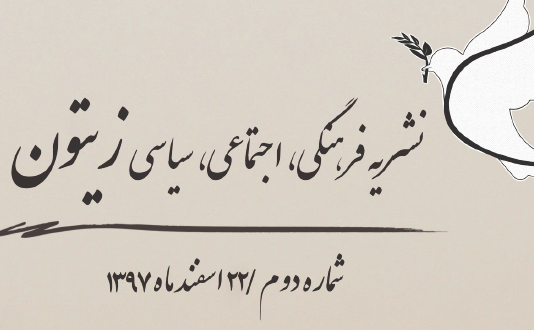 نشریه فرهنگی، اجتماعی، سیاسی زیتون
شماره دوم /۲۲ اسفند ماه ۱۳۹۷